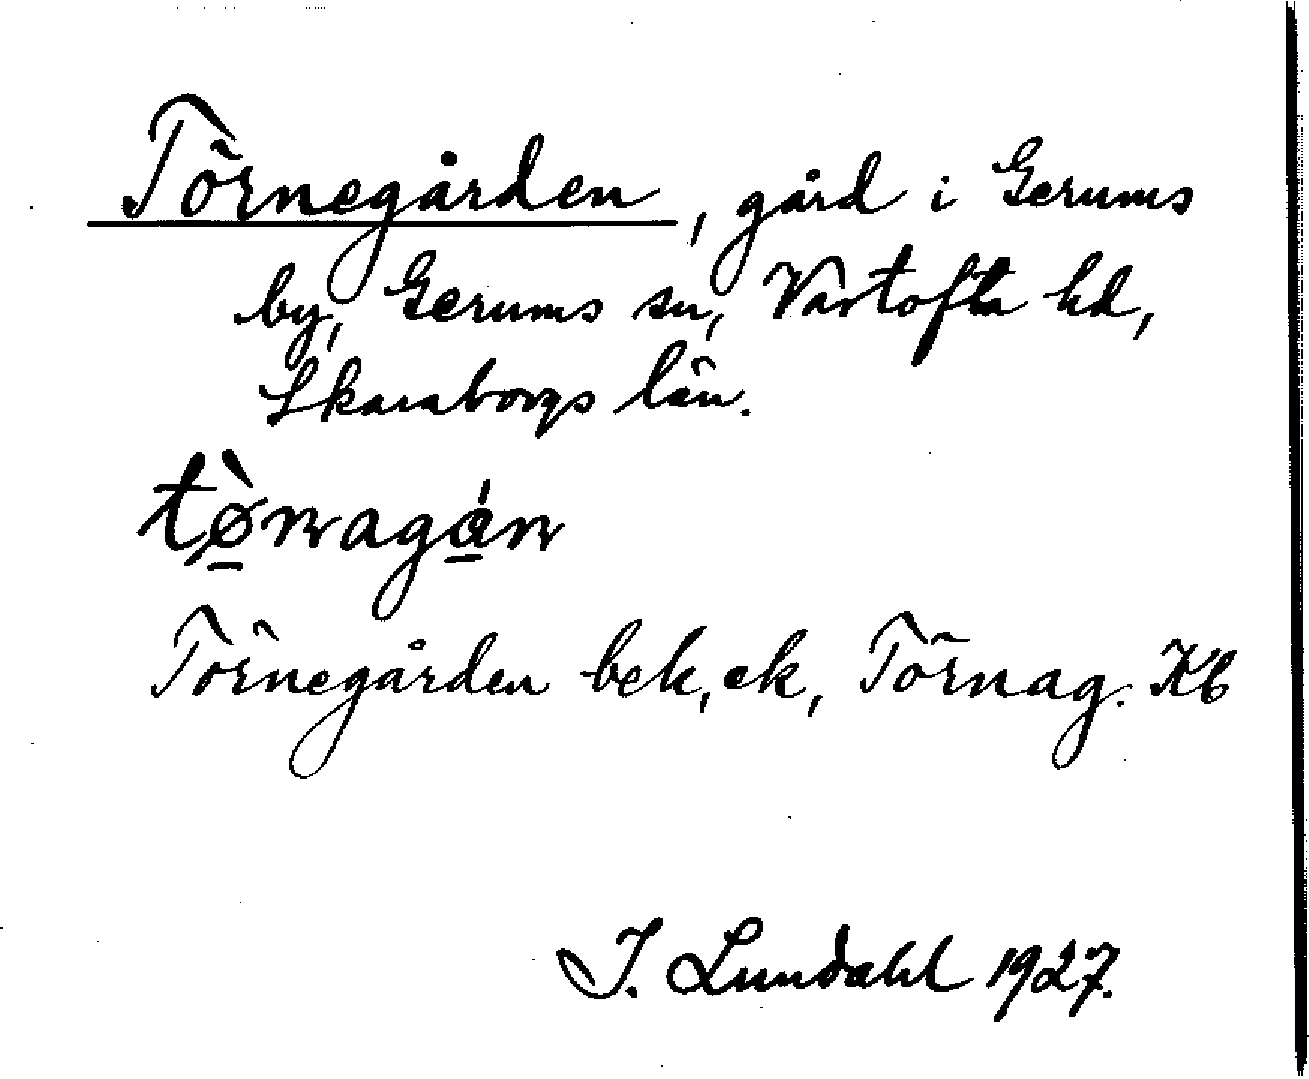 Törnegården, gård i Gerums
by, Gerums sn, Vartofta hd,
Skaraborgs län.
tø̀nagán
Törnegården bek, ek, Törnag. Kb
I. Lundahl 1927.